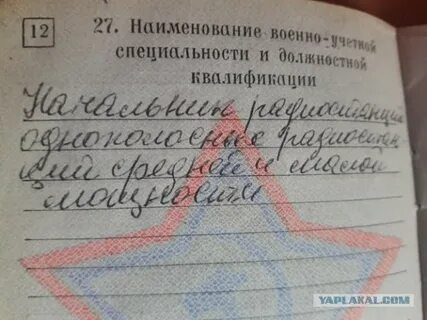 12
27. Наименование военно-учетной
специальности и должностной
квалификации
Начальник радиостанций
однополосных радиостан
ций средной и малой
мощности
YAPLAKAL.COM